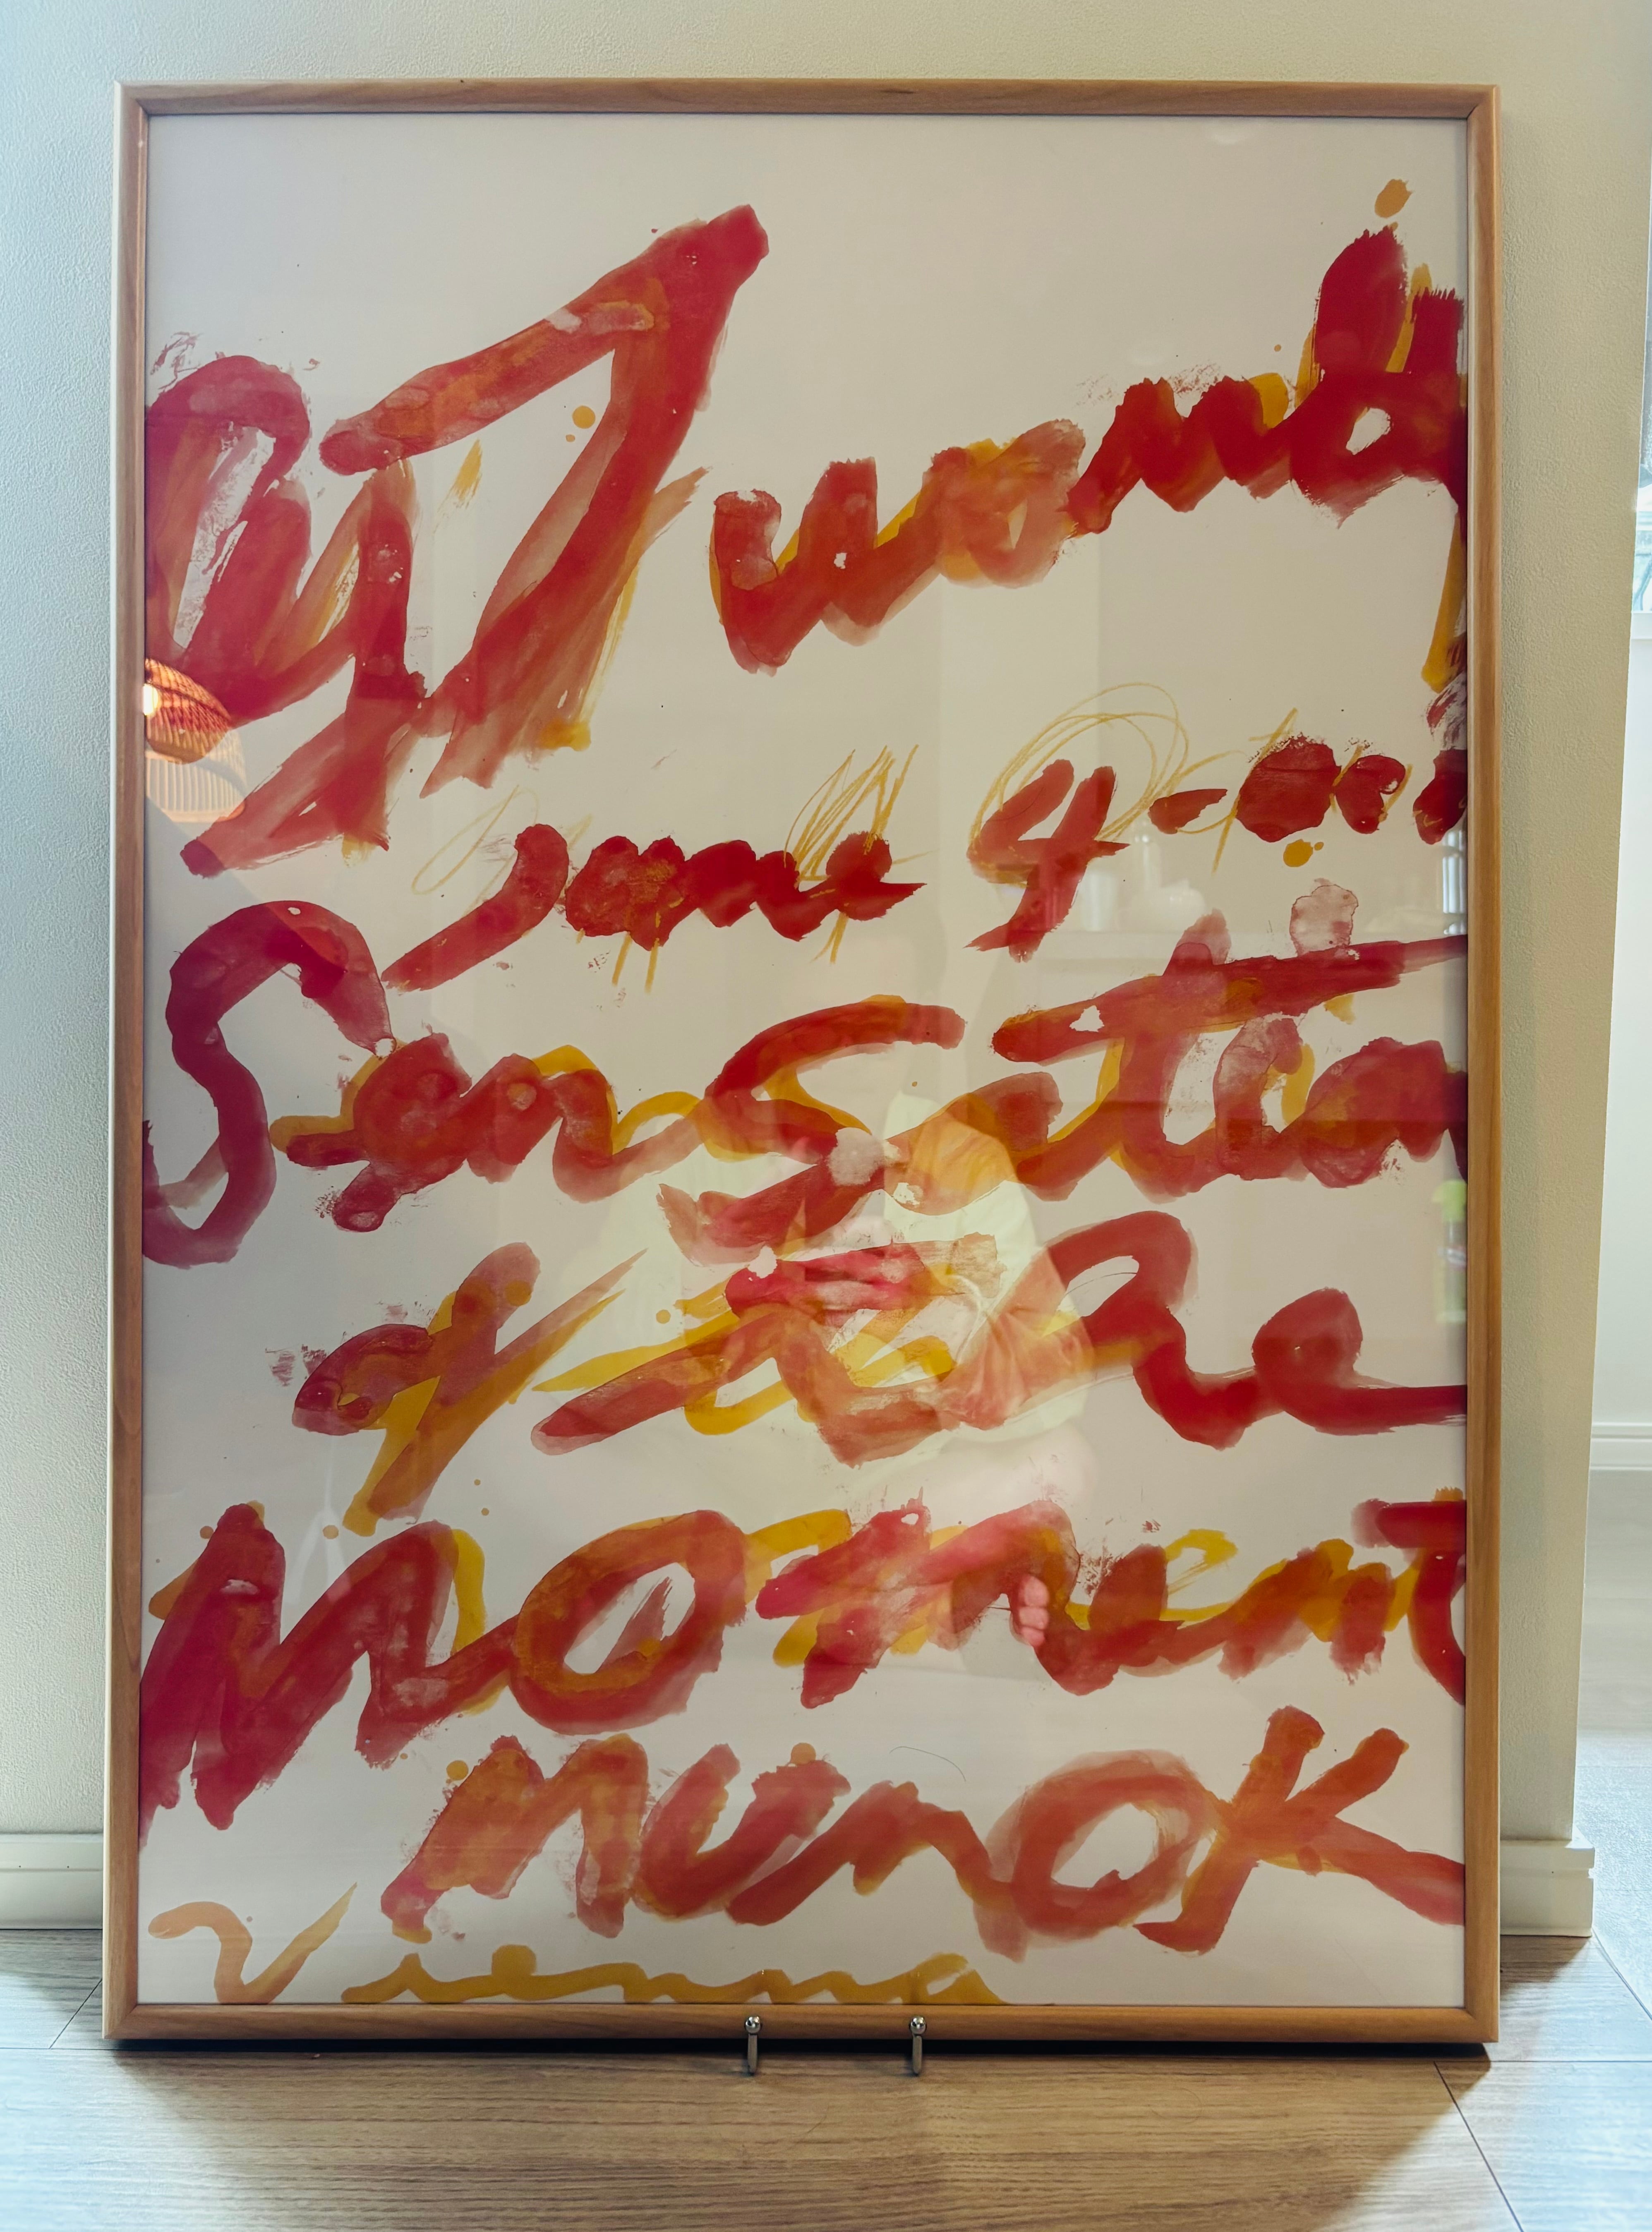 Cy Twombly
June 4 -
Sensations
of the
Moment
MUMOK
Vienna